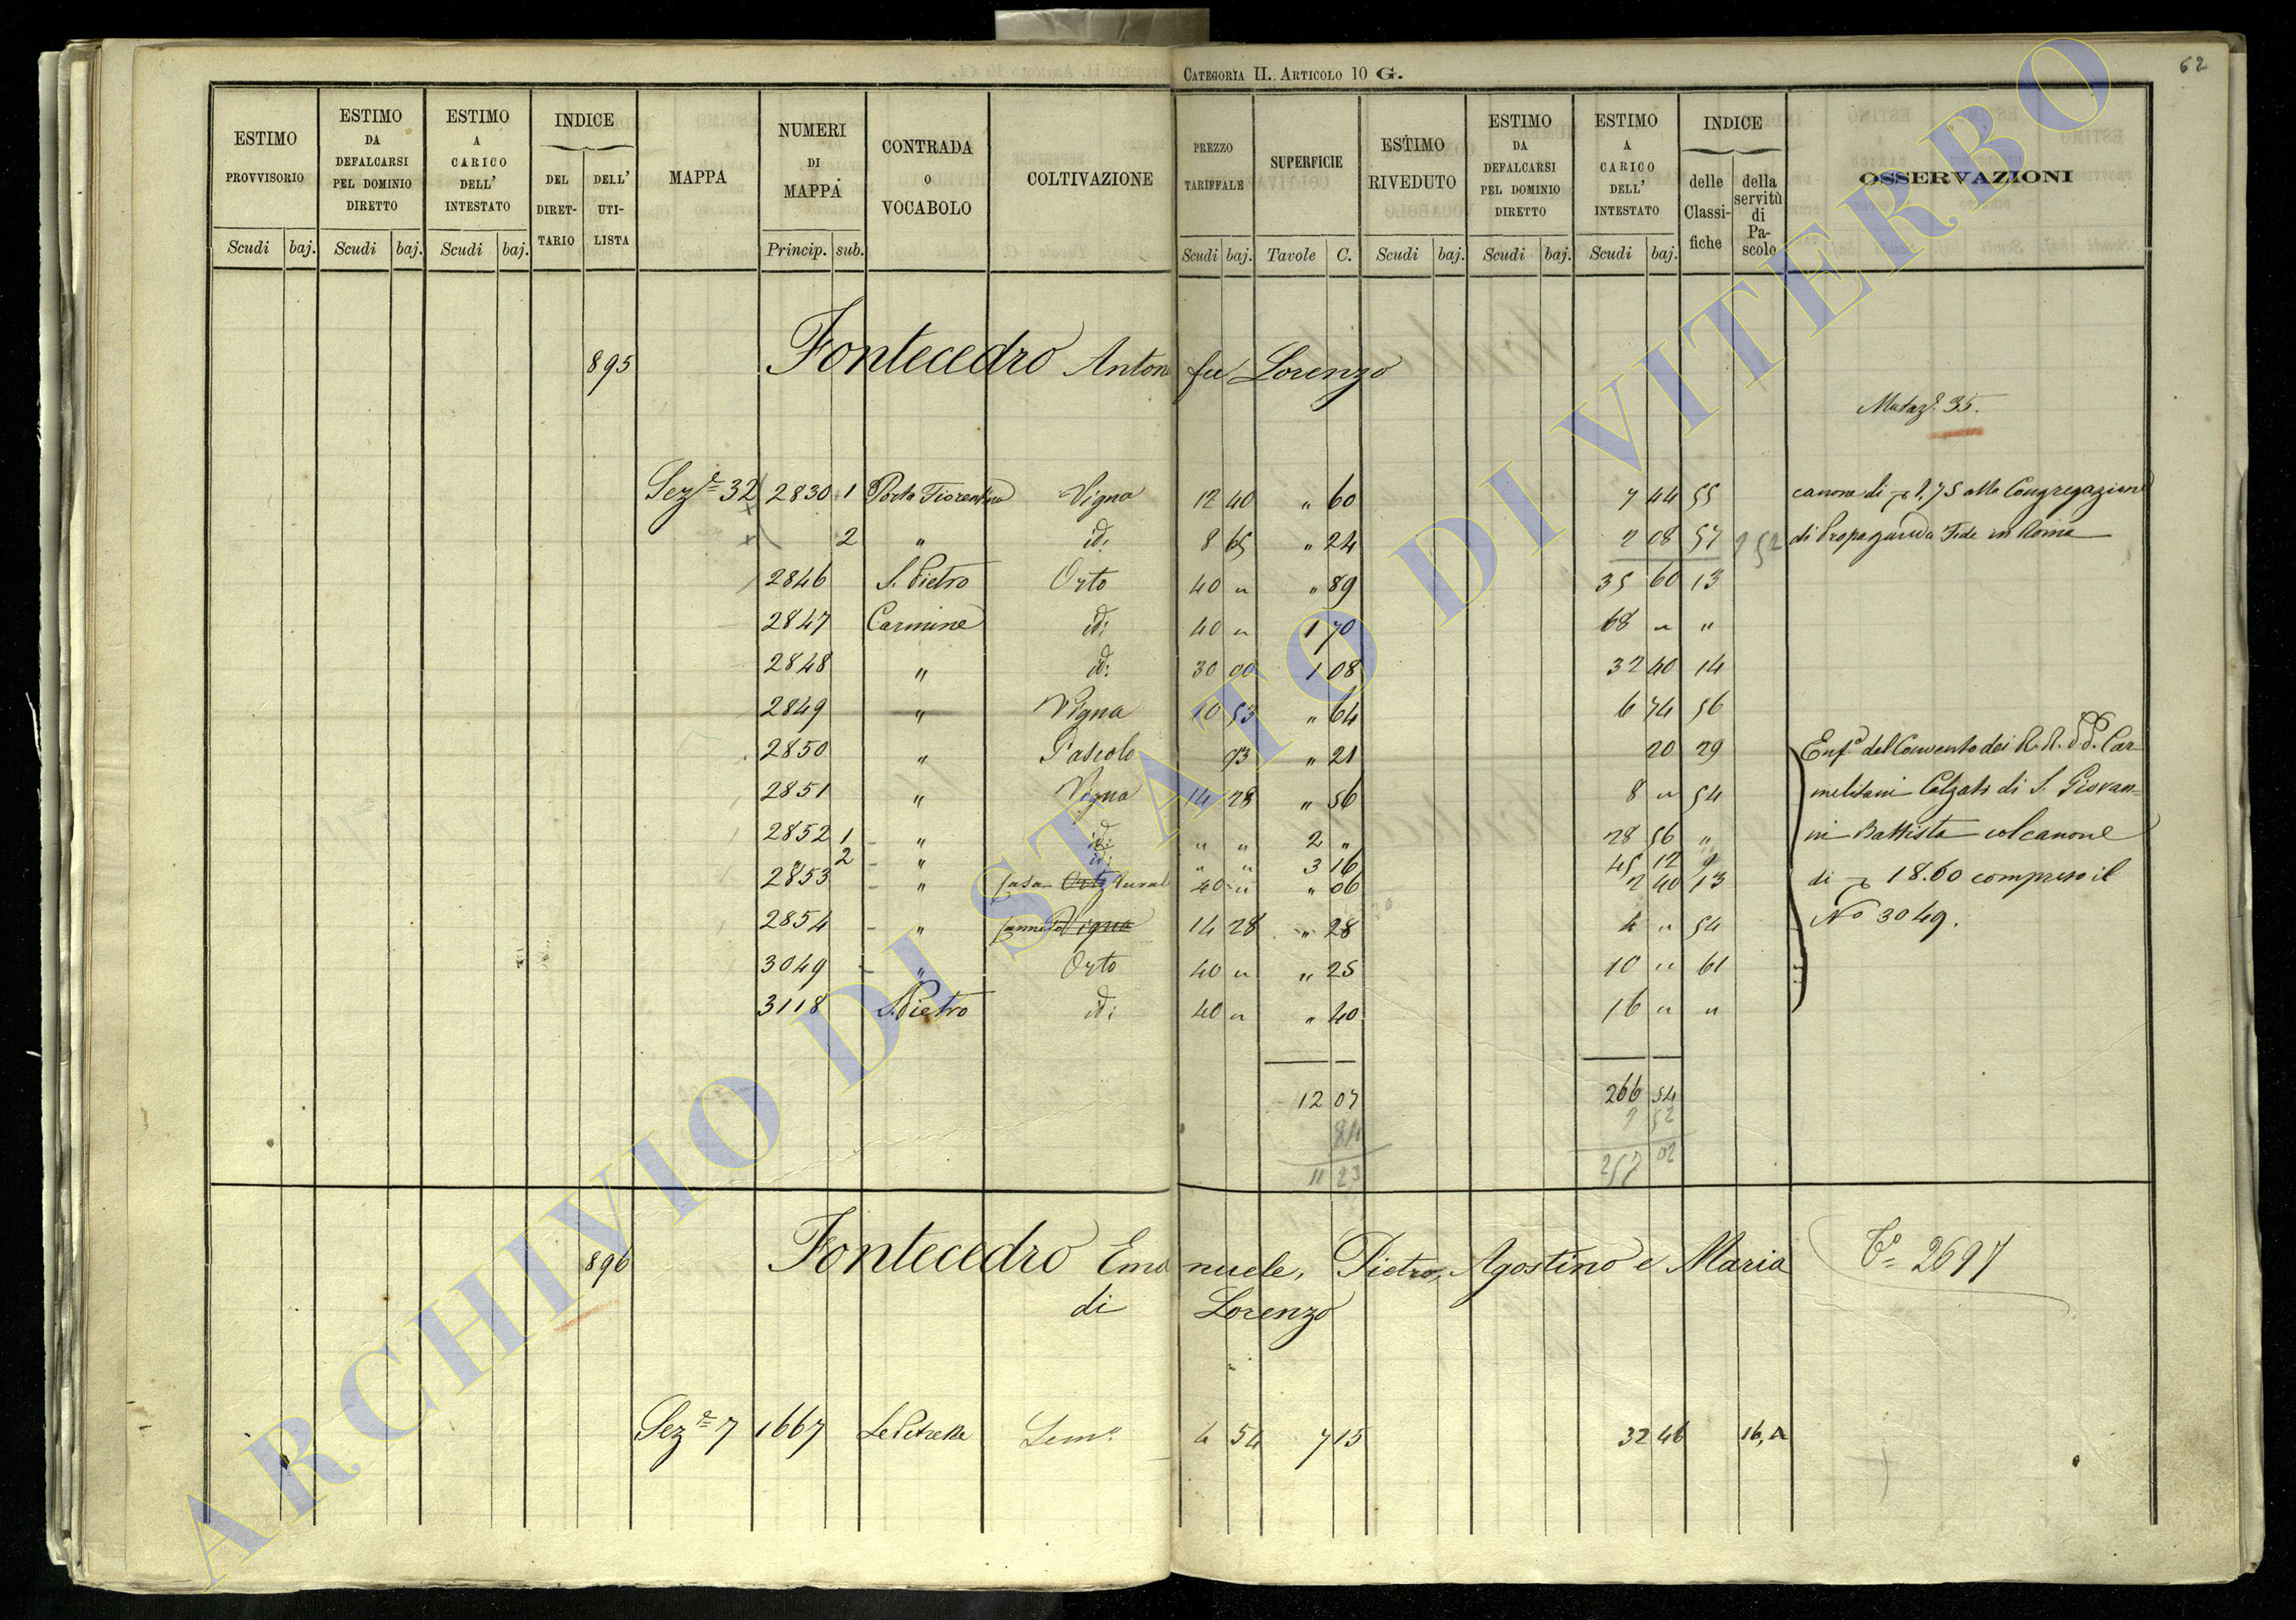 CATEGORIA II. ARTICOLO 10 G.
62
ESTIMO PROVVISORIO | ESTIMO DA DEFALCARSI PEL DOMINIO DIRETTO | ESTIMO A CARICO DELL' INTESTATO | INDICE | MAPPA | NUMERI DI MAPPA | CONTRADA O VOCABOLO | COLTIVAZIONE | PREZZO TARIFFALE | SUPERFICIE | ESTIMO RIVEDUTO | ESTIMO DA DEFALCARSI PEL DOMINIO DIRETTO | ESTIMO A CARICO DELL' INTESTATO | INDICE | OSSERVAZIONI
DEL DIRETTARIO | DELL' UTILISTA | delle Classifiche | della servitù di Pascolo
Scudi | baj. | Scudi | baj. | Scudi | baj. | Princip. | sub. | Scudi | baj. | Tavole | C. | Scudi | baj. | Scudi | baj. | Scudi | baj.
895 Fontecedro Anton fu Lorenzo
Mutaz.e 35.
Sez.e 32 2830 1 Porta Fiorentina Vigna 12 40 " 60 7 44 55 canone di 1,75 alla Congregazione
2 " id: 8 65 " 24 2 08 57 9 52 di Propaganda Fide in Roma
2846 S. Pietro Orto 40 " " 89 35 60 13
2847 Carmine id: 40 " 1 70 68 " "
2848 " id: 30 00 1 08 32 40 14
2849 " Vigna 10 53 " 64 6 74 56
2850 " Pascolo 93 " 21 20 29 Enf.a del Convento dei R.R. P.P. Car-
2851 " Vigna 14 28 " 56 8 " 54 melitani Calzati di S. Giovan-
2852 1 " id: " " 2 " 28 56 " ni Battista col canone
2 " id: " " 3 16 45 12 "
2853 " Casa Orto rurale 40 " " 06 2 40 13 di 18.60 compreso il
2854 " Canneto Vigna 14 28 " 28 4 " 54 No 3049.
3049 " Orto 40 " " 25 10 " 61
3118 S. Pietro id: 40 " " 40 16 " "
12 07 266 54
84 9 52
11 23 257 02
896 Fontecedro Emanuele, Pietro, Agostino e Maria
di Lorenzo
2697
Sez.e 7 1667 Le Petrelle Sem.o 4 54 7 15 32 46 16, A
ARCHIVIO DI STATO DI VITERBO